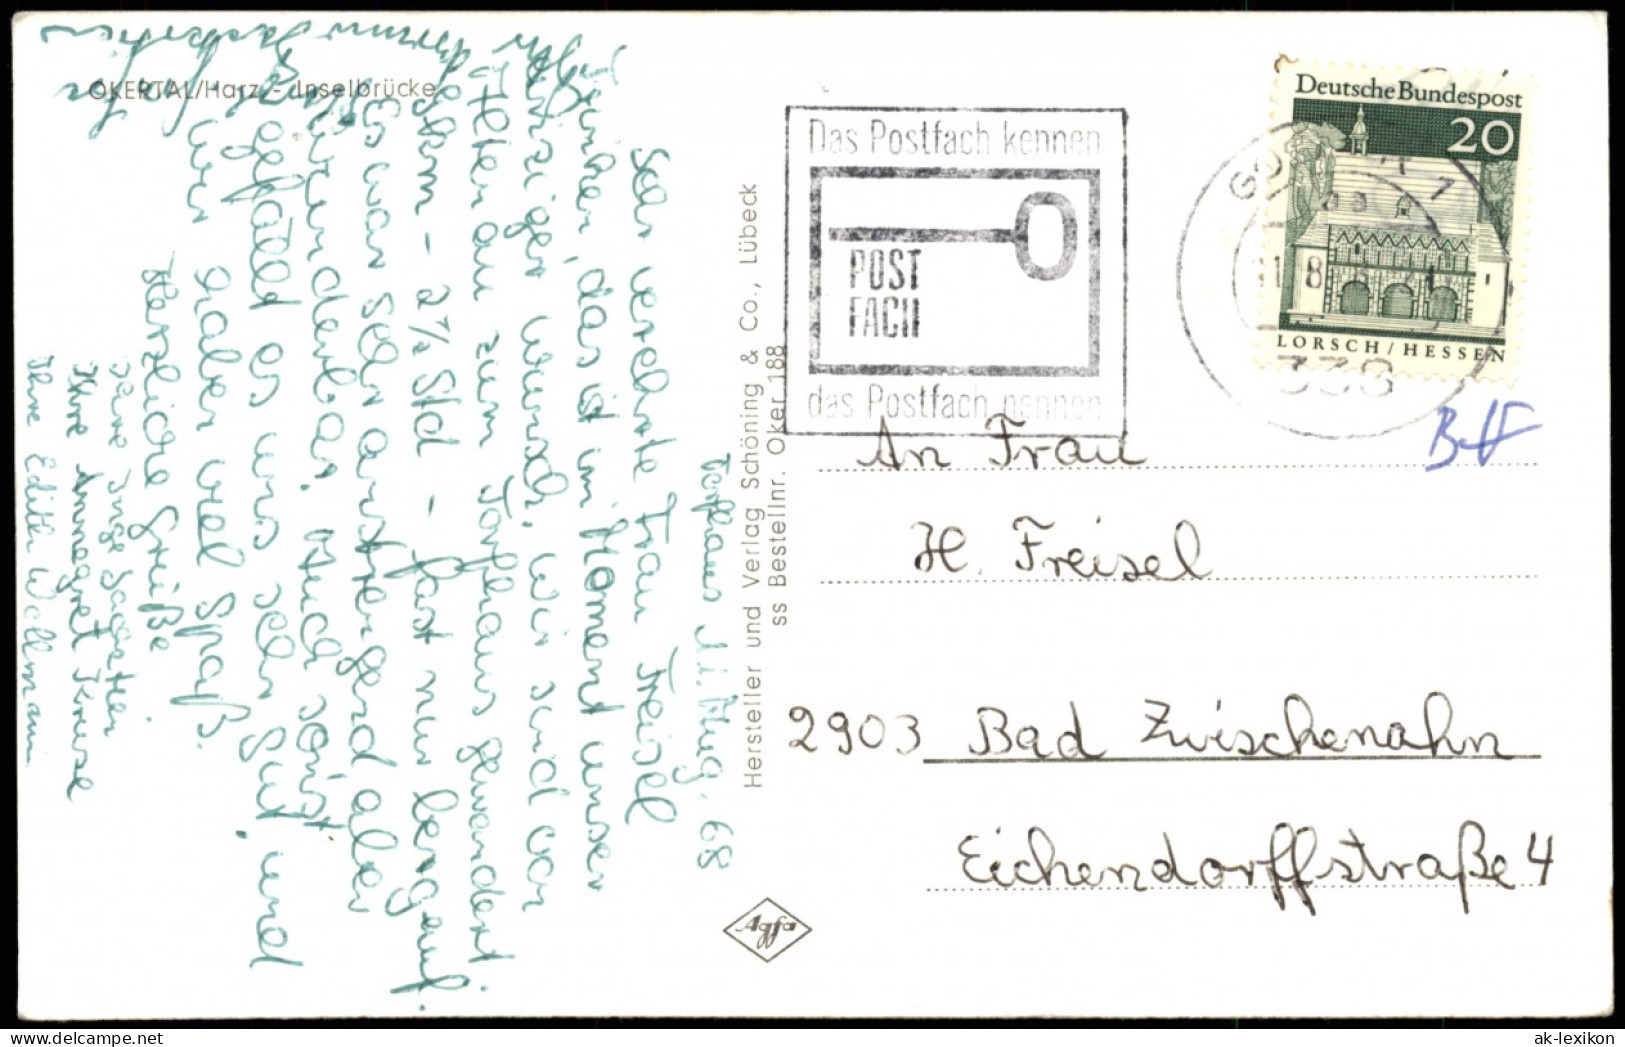 OKERTAL/Harz - Inselbrücke
Torfhaus 11. Aug. 68
Sehr verehrte Frau Freisel
Trinken, das ist im Moment unser
einziger Wunsch. Wir sind vor
von Altenau zum Torfhaus gewandert
8 km - 2 ½ Std - fast nur bergauf.
Es war sehr anstrengend aber
wunderbar. Auch sonst
gefällt es uns sehr gut und
wir haben viel Spaß.
Herzliche Grüße
Ihre Inge
Ihre Annegret Kruse
Ihre Edith Wollmann
Hersteller und Verlag Schöning & Co., Lübeck
ss Bestellnr. Oker 188
Agfa
Das Postfach kennen
POST
FACH
das Postfach nennen
Deutsche Bundespost
20
LORSCH/HESSEN
338
An Frau
H. Freisel
2903 Bad Zwischenahn
Eichendorffstraße 4
ak-lexikon